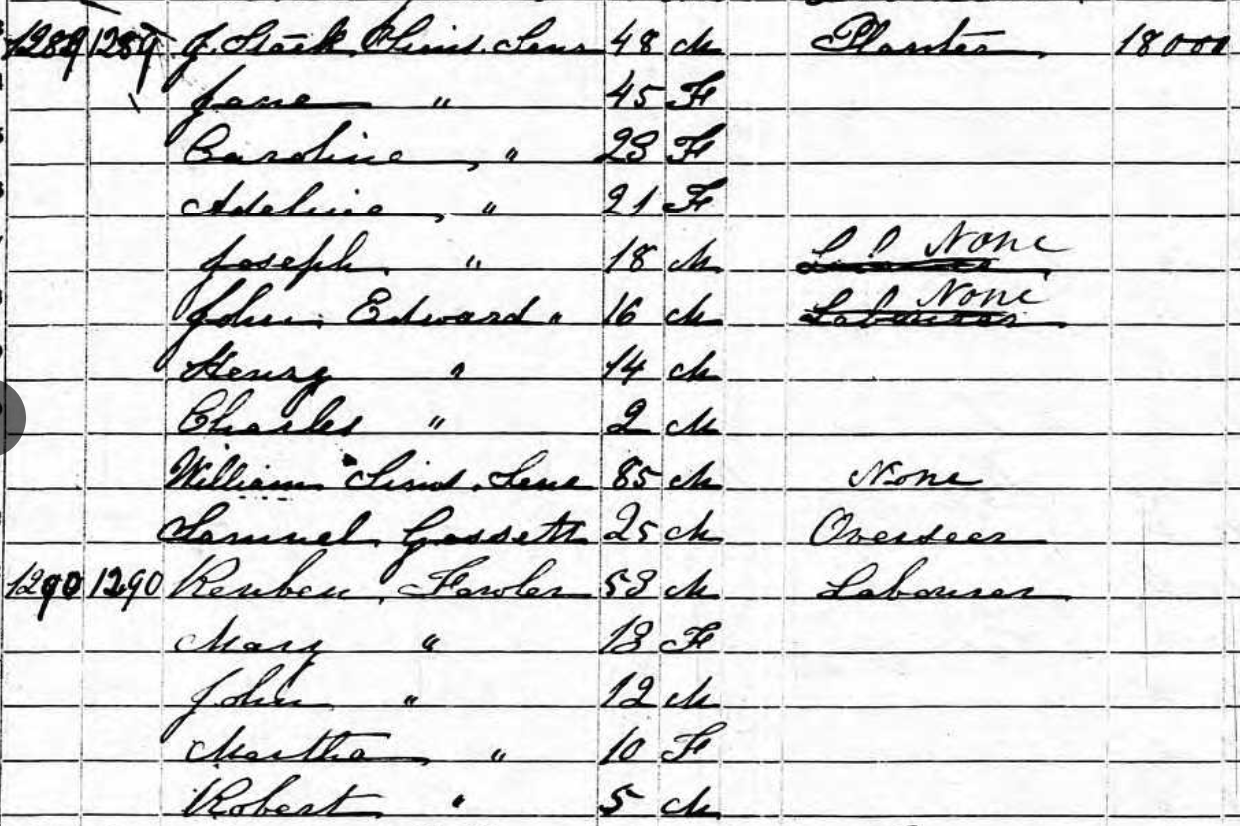 1289 1289 J. Stark Sims Senr 48 M Planter 18000
Jane " 45 F
Caroline " 23 F
Adeline " 21 F
Joseph " 18 M None
John Edward " 16 M Labourer None
Henry " 14 M
Charles " 2 M
William Sims Senr 85 M None
Samuel Gossett 25 M Overseer
1290 1290 Reuben Fowler 53 M Labourer
Mary " 13 F
John " 12 M
Martha " 10 F
Robert " 5 M